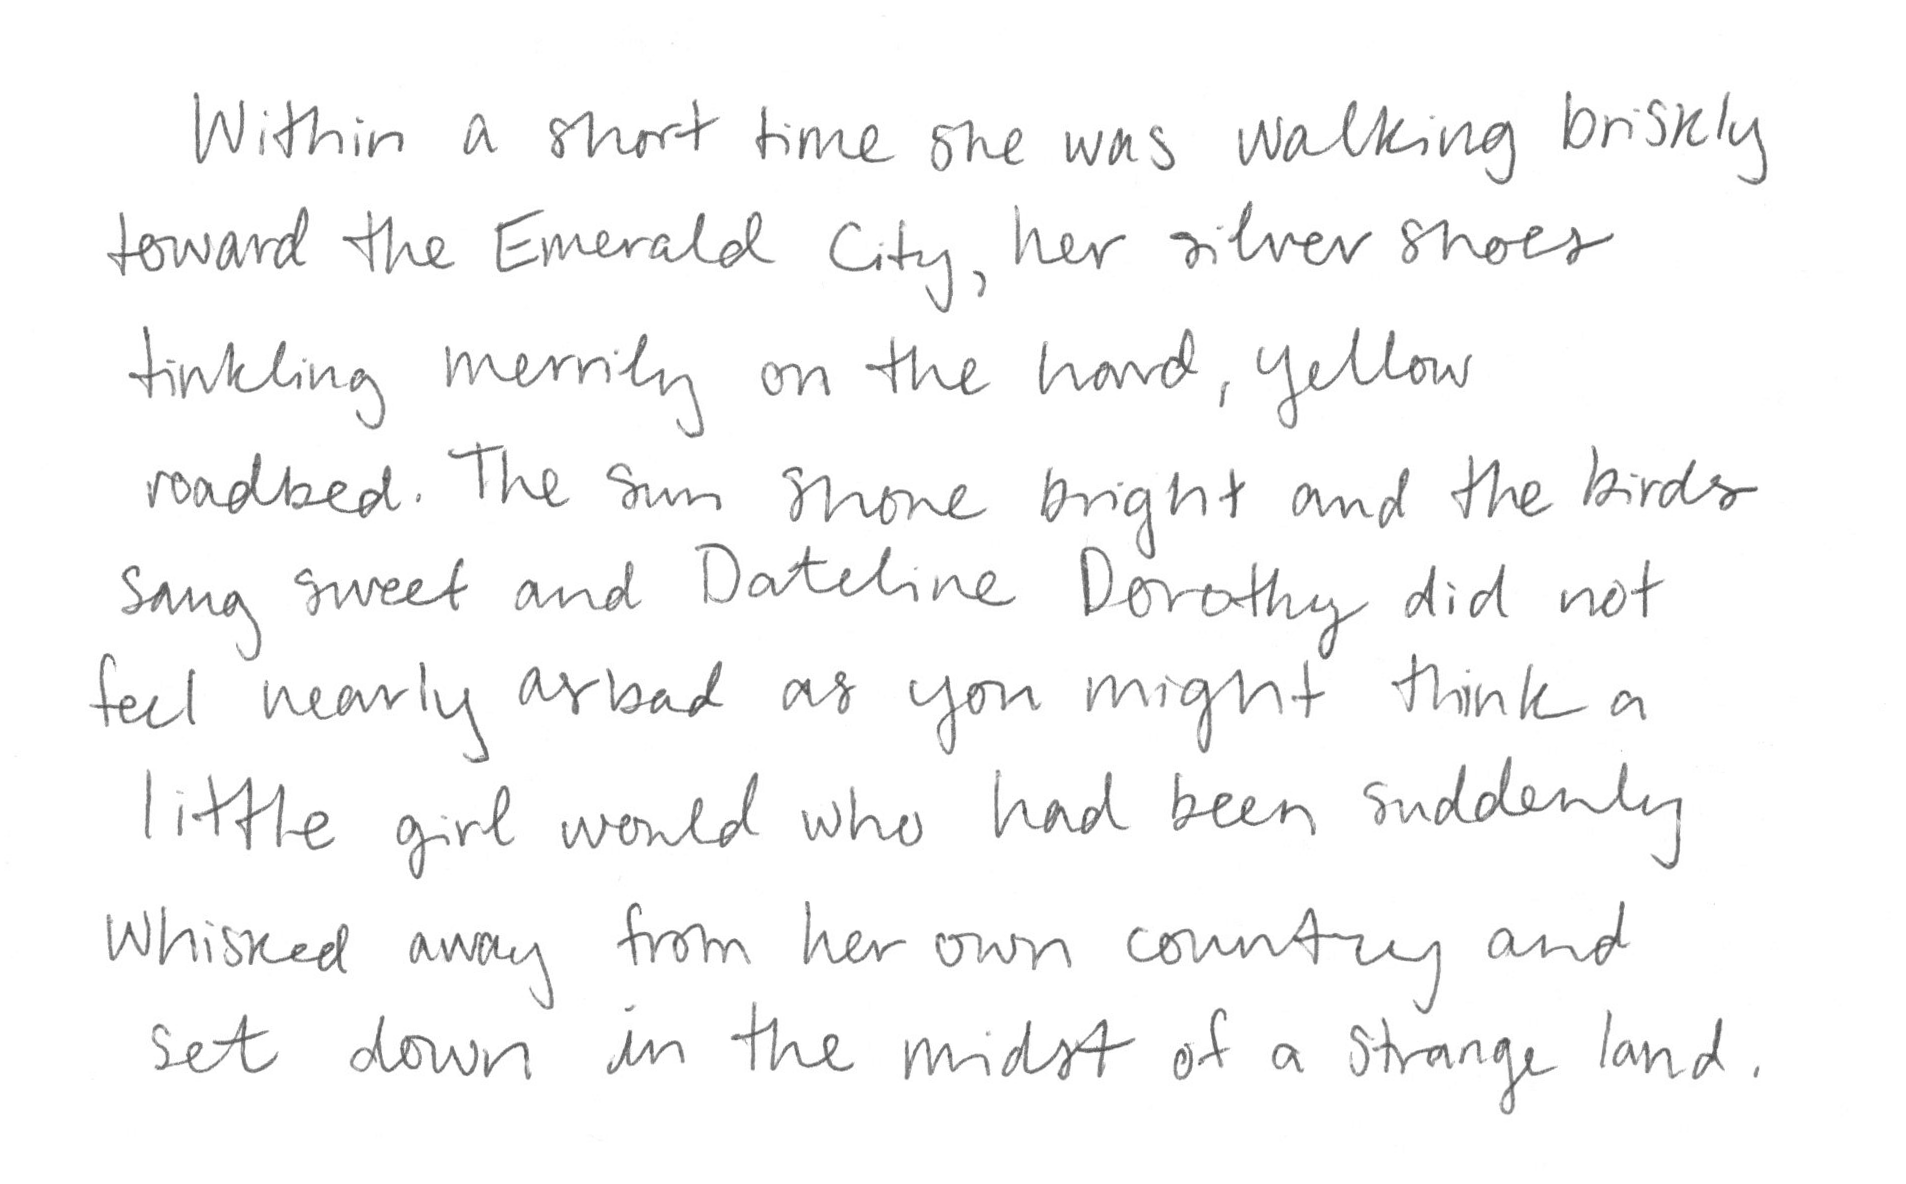 Within a short time she was walking briskly
toward the Emerald City, her silver shoes
tinkling merrily on the hard, yellow
roadbed. The sun shone bright and the birds
sang sweet and Dateline Dorothy did not
feel nearly as bad as you might think a
little girl would who had been suddenly
whisked away from her own country and
set down in the midst of a strange land.